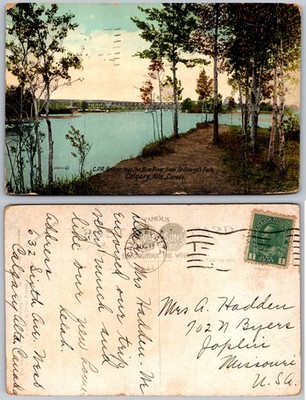 C.P.R. Bridge over the Bow River from St. George's Park,
Calgary, Alta., Canada.
FAMOUS
THE WORLD
Dear Mrs Hadden We
Enjoyed our trip
very much and
like our new home
Leah
Address
632 Sixth Ave West
Calgary Alta Canada
Mrs A. Hadden
702 N Byers
Joplin
Missouri
U.S.A.
1
1